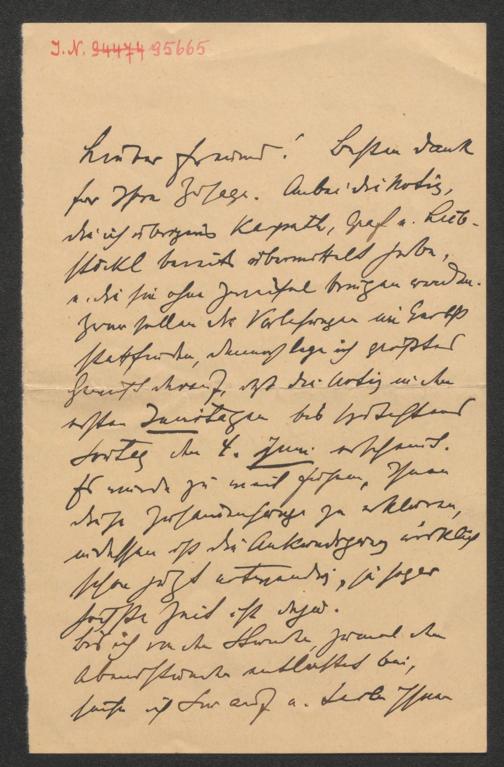 I. N. 94474 95665
Lieber Freund! Besten Dank
für Ihre Zusage. Anbei die Notiz,
die ich übrigens Karpath, Graf u. Lieb-
stöckl bereits übermittelt habe,
u. die sie ohne Zweifel bringen werden.
Zwar sollen die Vorlesungen im Herbst
stattfinden, dennoch lege ich größtes
Gewicht darauf, daß die Notiz in den
ersten Junitagen bis spätestens
Sonntag den 4. Juni erscheint.
Es würde zu weit führen, Ihnen
diese Zusammenhänge zu erklären,
indessen ist die Ankündigung wirklich
schon jetzt notwendig, ja sogar
höchste Zeit ist dazu.
bin ich von den Stunden, zumal den
Abendstunden entlastet bin,
suche ich Sie auf u. Ihnen